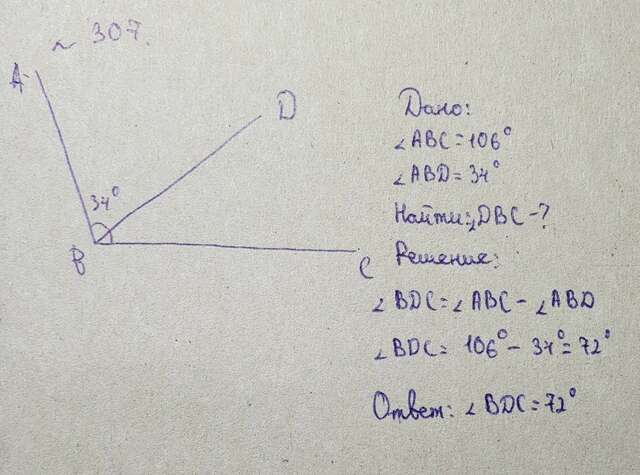 ~ 307.
A
D
34°
B
C
Дано:
∠ABC=106°
∠ABD=34°
Найти:∠DBC-?
Решение:
∠BDC=∠ABC-∠ABD
∠BDC= 106°-34°=72°
Ответ: ∠BDC=72°